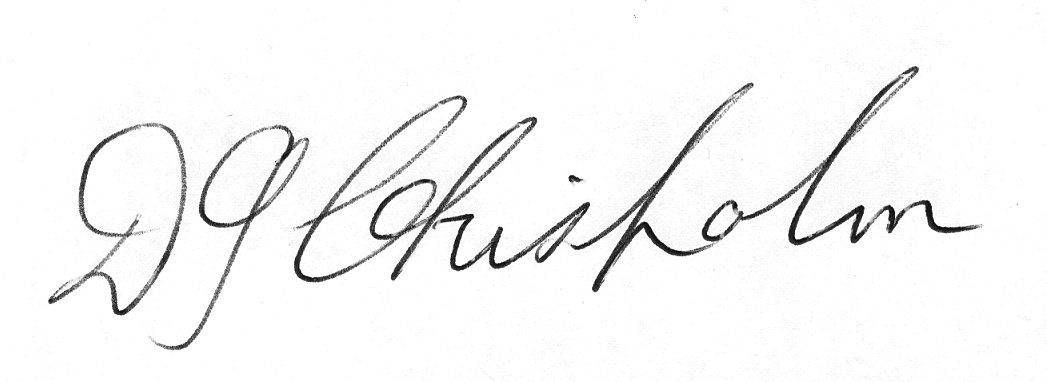 DJ Chisholm